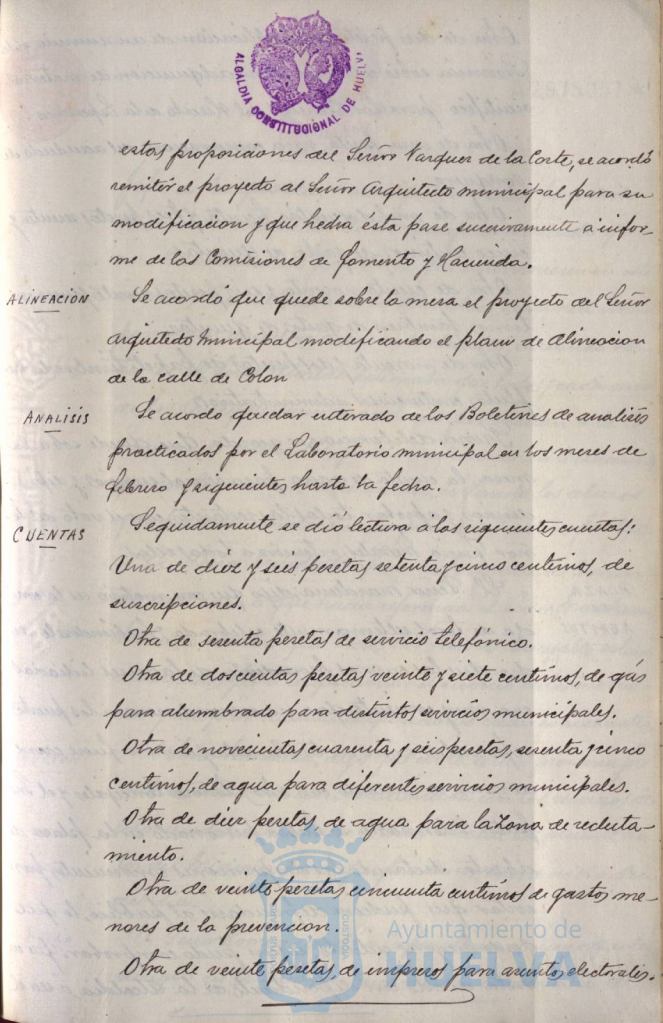 ALCALDIA CONSTITUCIONAL DE HUELVA
estas proposiciones del Señor Vazquez de la Corte, se acordó
remitir el proyecto al Señor Arquitecto municipal para su
modificacion y que hecha ésta pase sucesivamente á infor-
me de las Comisiones de Fomento y Hacienda.
ALINEACION
Se acordó que quede sobre la mesa el proyecto del Señor
Arquitecto Municipal modificando el plano de Alineacion
de la calle de Colon
ANALISIS
Se acordo quedar enterado de los Boletines de analisis
practicados por el Laboratorio municipal en los meses de
febrero y siguientes hasta la fecha.
CUENTAS
Seguidamente se dió lectura á las siguientes cuentas:
Una de diez y seis pesetas setenta y cinco centimos, de
suscripciones.
Otra de sesenta pesetas de servicio telefónico.
Otra de doscientas pesetas veinte y siete centimos, de gás
para alumbrado para distintos servicios municipales.
Otra de novecientas cuarenta y seis pesetas, sesenta y cinco
centimos, de agua para diferentes servicios municipales.
Otra de diez pesetas, de agua para la Zona de recluta-
miento.
Otra de veinte pesetas cincuenta centimos de gastos me-
nores de la prevencion.
Otra de veinte pesetas, de impresos para asuntos electorales.
Ayuntamiento de
HUELVA